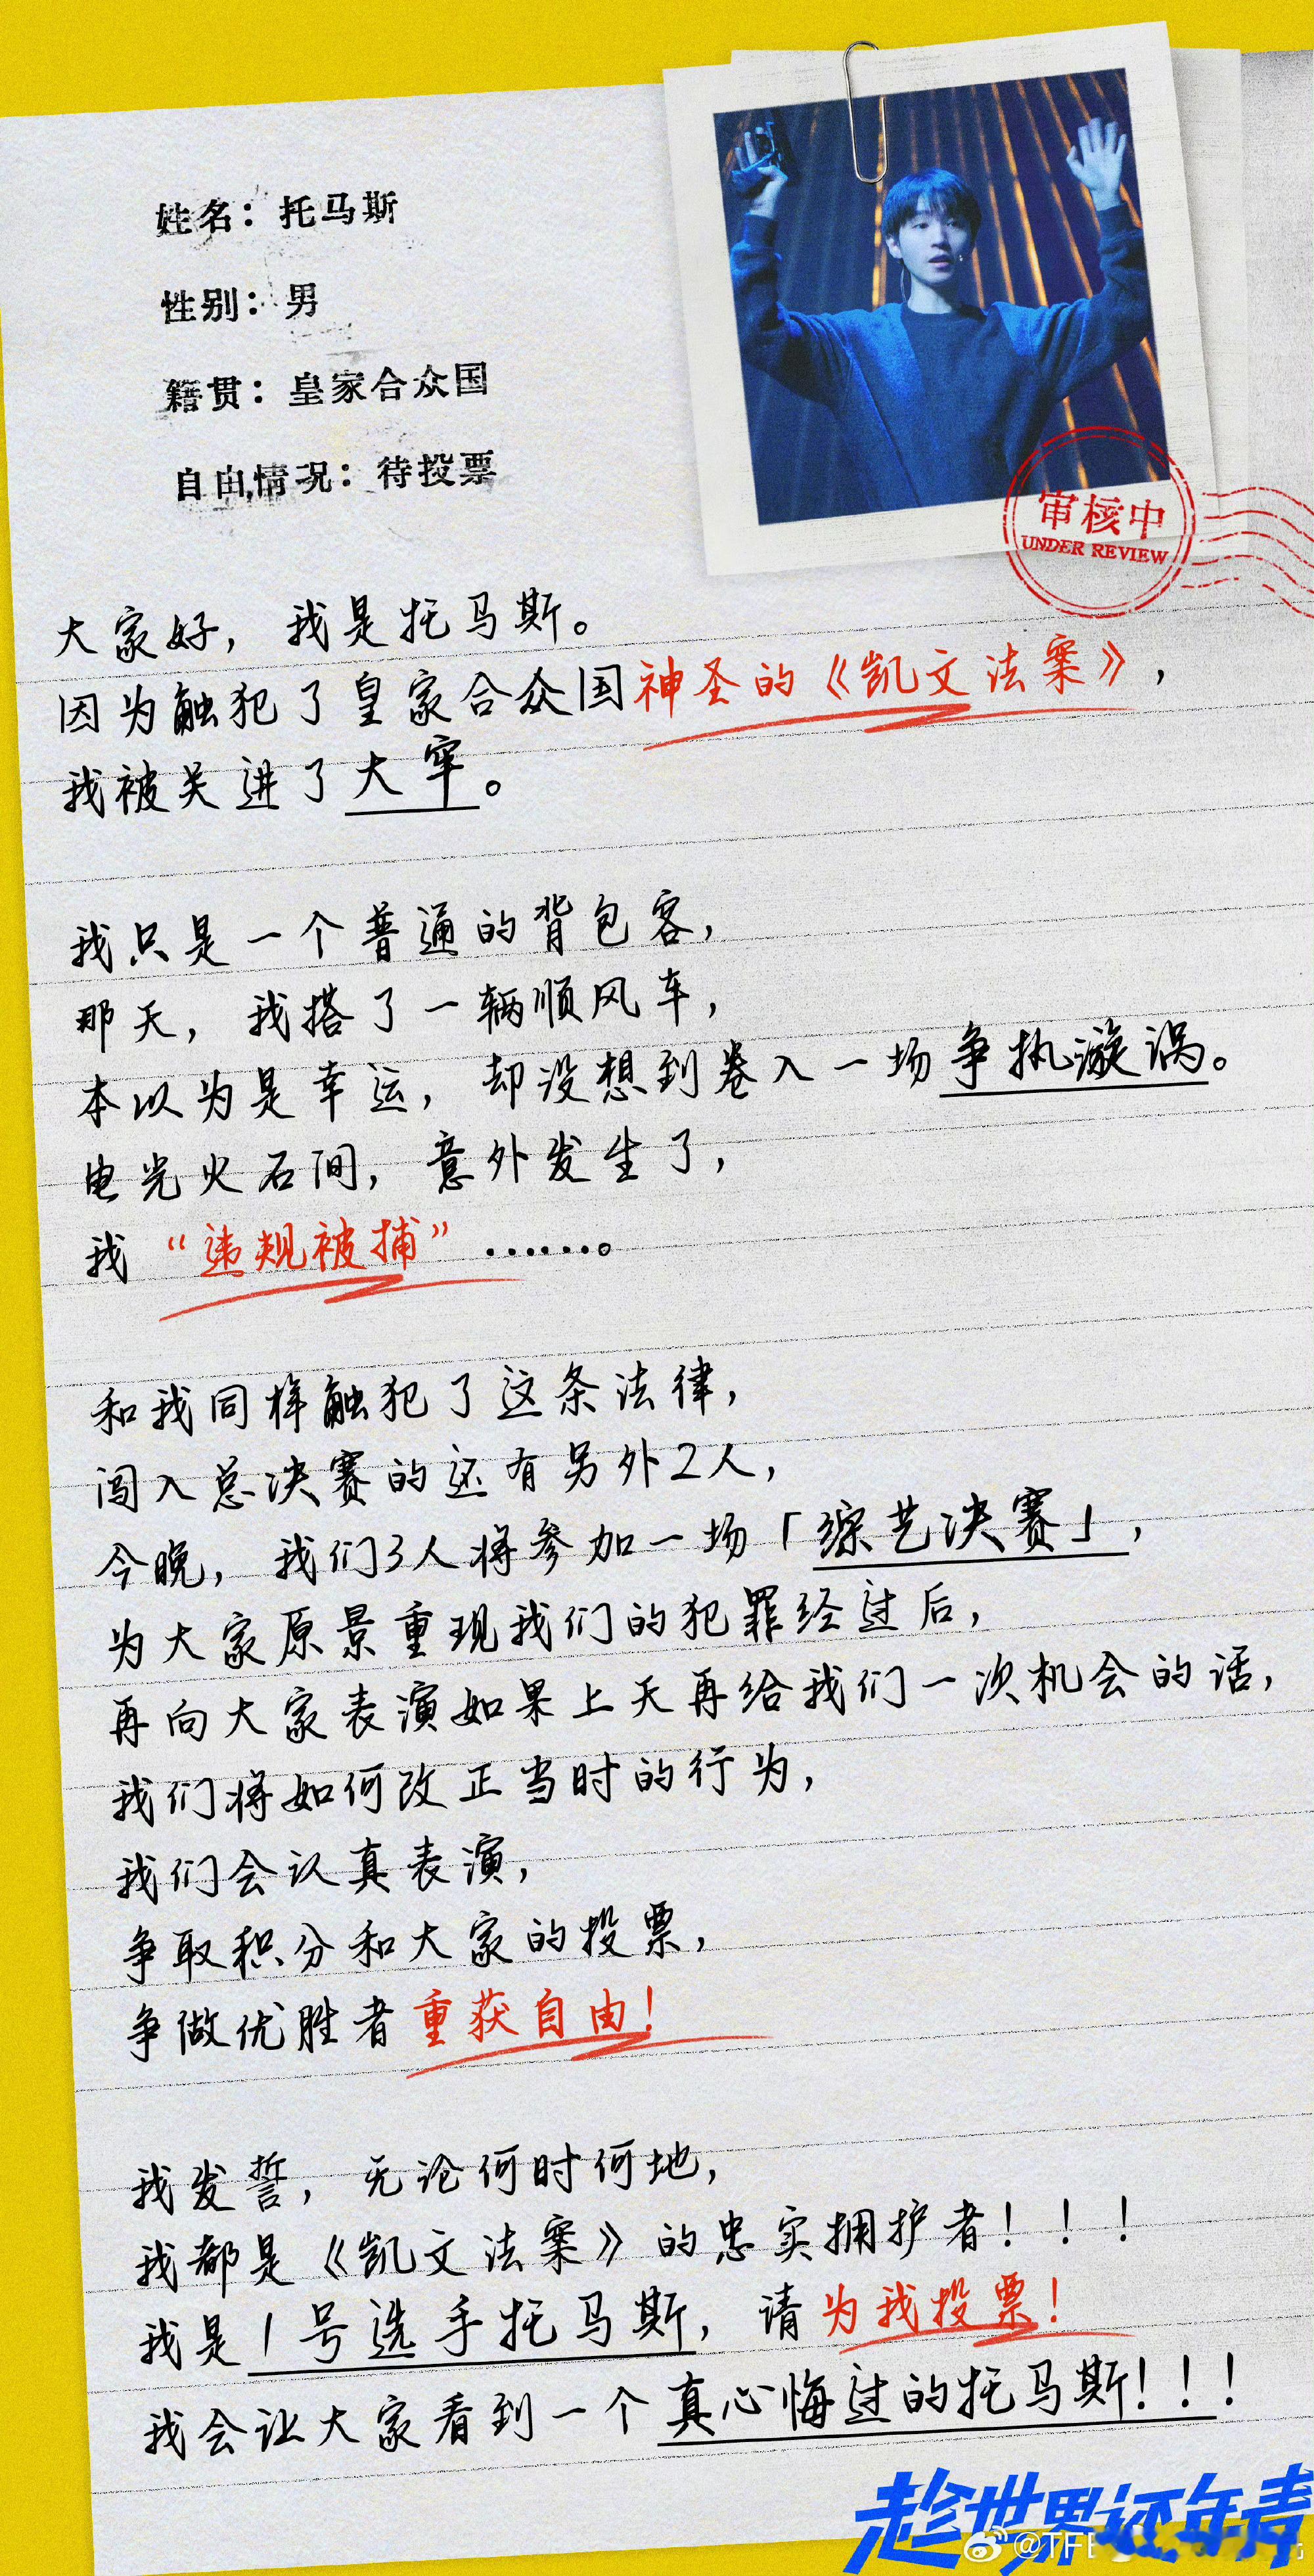 姓名：托马斯
性别：男
籍贯：皇家合众国
自由情况：待投票
审核中
UNDER REVIEW
大家好，我是托马斯。
因为触犯了皇家合众国神圣的《凯文法案》，
我被关进了大牢。
我只是一个普通的背包客，
那天，我搭了一辆顺风车，
本以为是幸运，却没想到卷入一场争执漩涡。
电光火石间，意外发生了，
我“违规被捕”……。
和我同样触犯了这条法律，
闯入总决赛的还有另外2人，
今晚，我们3人将参加一场「综艺决赛」，
为大家原景重现我们的犯罪经过后，
再向大家表演如果上天再给我们一次机会的话，
我们将如何改正当时的行为，
我们会认真表演，
争取积分和大家的投票，
争做优胜者重获自由！
我发誓，无论何时何地，
我都是《凯文法案》的忠实拥护者！！！
我是1号选手托马斯，请为我投票！
我会让大家看到一个真心悔过的托马斯！！！
趁世界还年青